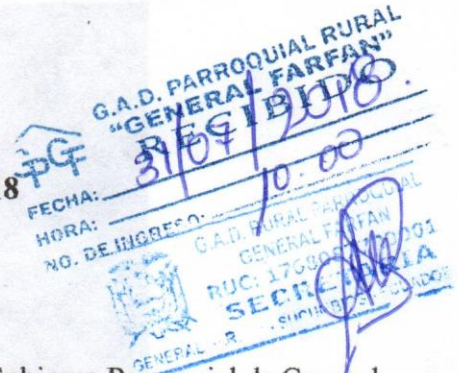 G.A.D. PARROQUIAL RURAL
"GENERAL FARFAN"
RECIBIDO
PGF
8
FECHA: 31/07/2018.
HORA: 10:00
NO. DE INGRESO:
G.A.D. RURAL PARROQUIAL
GENERAL FARFAN
RUC:
SECRETARIA
GENERAL
Parroquial de General